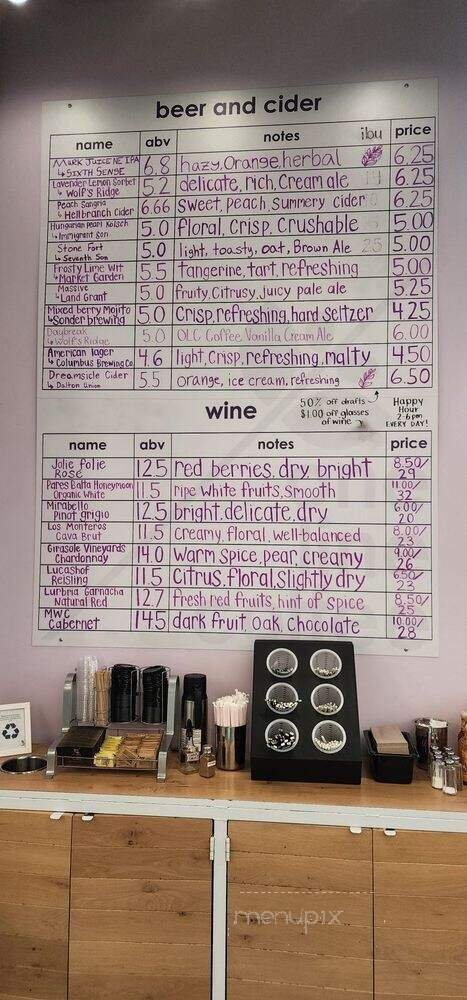 beer and cider
name abv notes ibu price
Mark Juice NE IPA
↳ Sixth Sense 6.8 hazy, Orange, herbal 6.25
Lavender Lemon Sorbet
↳ Wolf's Ridge 5.2 delicate, rich, Cream ale 6.25
Peach Sangria
↳ Hellbranch Cider 6.66 sweet, peach, summery cider 6.25
Hungarian pearl Kolsch
↳ Immigrant Son 5.0 floral, crisp, crushable 5.00
Stone Fort
↳ Seventh Son 5.0 light, toasty, oat, Brown Ale 25 5.00
Frosty Lime Wit
↳ Market Garden 5.5 tangerine, tart, refreshing 5.00
Massive
↳ Land Grant 5.0 fruity, citrusy, juicy pale ale 5.25
Mixed berry Mojito
↳ Sonder brewing 5.0 Crisp, refreshing, hard seltzer 4.25
Daybreak
↳ Wolf's Ridge 5.0 OLC Coffee, Vanilla Cream Ale 6.00
American lager
↳ Columbus Brewing Co. 4.6 light, crisp, refreshing, malty 4.50
Dreamsicle Cider
↳ Dalton Union 5.5 orange, ice cream, refreshing 6.50
50% off drafts
$1.00 off glasses
of wine
Happy
Hour
2-6pm
EVERY DAY!
wine
name abv notes price
Jolie folie
Rosé 12.5 red berries, dry, bright 8.50/
29
Pares Balta Honeymoon
Organic White 11.5 ripe white fruits, smooth 11.00/
32
Mirabello
Pinot grigio 12.5 bright, delicate, dry 6.00/
20
Los Monteros
Cava Brut 11.5 creamy, floral, well-balanced 8.00/
23
Girasole Vineyards
Chardonnay 14.0 Warm spice, pear, creamy 9.00/
26
Lucashof
Reisling 11.5 Citrus, floral, slightly dry 6.50/
23
Lurbria Garnacha
Natural Red 12.7 fresh red fruits, hint of spice 8.50/
25
MWC
Cabernet 14.5 dark fruit, oak, chocolate 10.00/
28
menupix